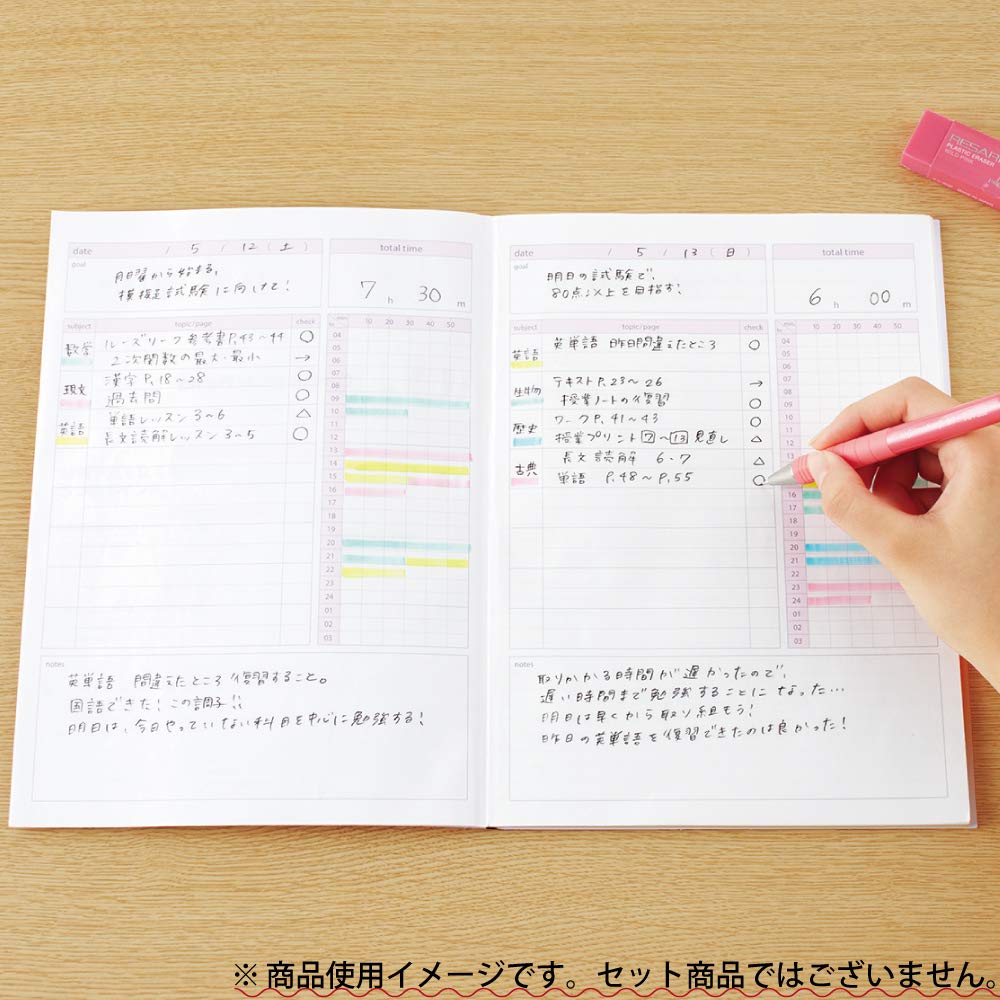 date / 5 / 12 (土)
total time
goal
月曜から始まる、
模擬試験に向けて!
7 h 30 m
subject topic/page check
min. 10 20 30 40 50
hr.
数学 ルーズリーフ 参考書P.43～44 ○
2次関数の最大・最小 →
現文 漢字 P.18～28 ○
過去問 ○
英語 単語レッスン 3～6 △
長文読解レッスン 3～5 ○
04
05
06
07
08
09
10
11
12
13
14
15
16
17
18
19
20
21
22
23
24
01
02
03
notes
英単語 間違えたところ 復習すること。
国語できた! この調子!!
明日は、今日やっていない科目を中心に勉強する!
date / 5 / 13 (日)
total time
goal
明日の試験で、
80点以上を目指す!
6 h 00 m
subject topic/page check
min. 10 20 30 40 50
hr.
英語 英単語 昨日間違えたところ ○
生物 テキスト P.23～26 →
授業ノートの復習 ○
歴史 ワーク P.41～43 ○
授業プリント 7～13 見直し △
古典 長文読解 6・7 △
単語 P.48～P.55 ○
04
05
06
07
08
09
10
11
12
13
16
17
18
19
20
21
22
23
24
01
02
03
notes
取りかかる時間が遅かったので、
遅い時間まで勉強することになった…
明日は早くから取り組もう!
昨日の英単語を復習できたのは良かった!
PLASTIC ERASER
MILD PINK
※商品使用イメージです。セット商品ではございません。